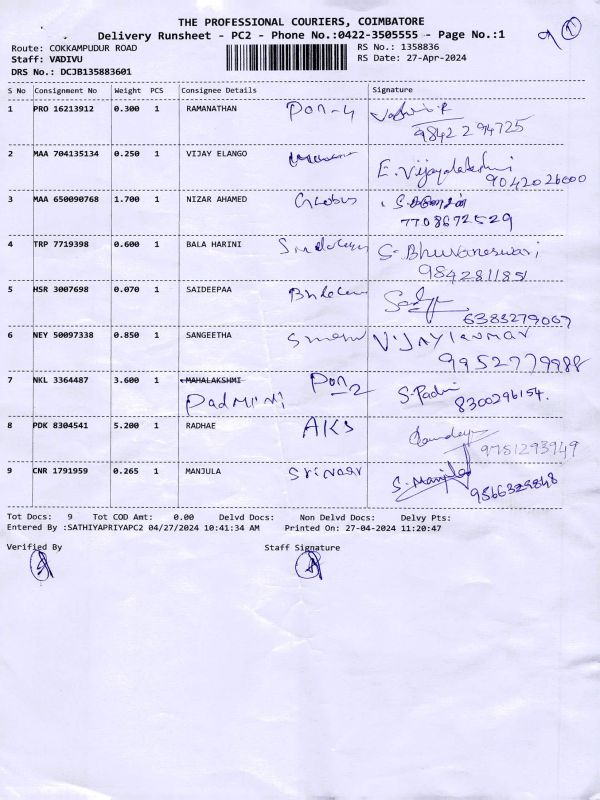 THE PROFESSIONAL COURIERS, COIMBATORE
Delivery Runsheet - PC2 - Phone No.:0422-3505555 - Page No.:1
Route: COKKAMPUDUR ROAD
RS No.: 1358836
Staff: VADIVU
RS Date: 27-Apr-2024
DRS No.: DCJB135883601
S No Consignment No Weight PCS Consignee Details Signature
1 PRO 16213912 0.300 1 RAMANATHAN Pon-4
98422 94725
2 MAA 704135134 0.250 1 VIJAY ELANGO E. Vijayalakshmi
9042026000
3 MAA 650090768 1.700 1 NIZAR AHAMED Globus
7708672529
4 TRP 7719398 0.600 1 BALA HARINI S. Bhuvaneswari
9842811851
5 HSR 3007698 0.070 1 SAIDEEPAA
6383279067
6 NEY 50097338 0.850 1 SANGEETHA VIJAYKUMAR
9952779988
7 NKL 3364487 3.600 1 MAHALAKSHMI Pon-2 S. Padmi
PADMINI 8300296154.
8 PDK 8304541 5.200 1 RADHAE AKS
9781293949
9 CNR 1791959 0.265 1 MANJULA Srinivasr S. Manjula
9566329848
Tot Docs: 9 Tot COD Amt: 0.00 Delvd Docs: Non Delvd Docs: Delvy Pts:
Entered By :SATHIYAPRIYAPC2 04/27/2024 10:41:34 AM Printed On: 27-04-2024 11:20:47
Verified By Staff Signature